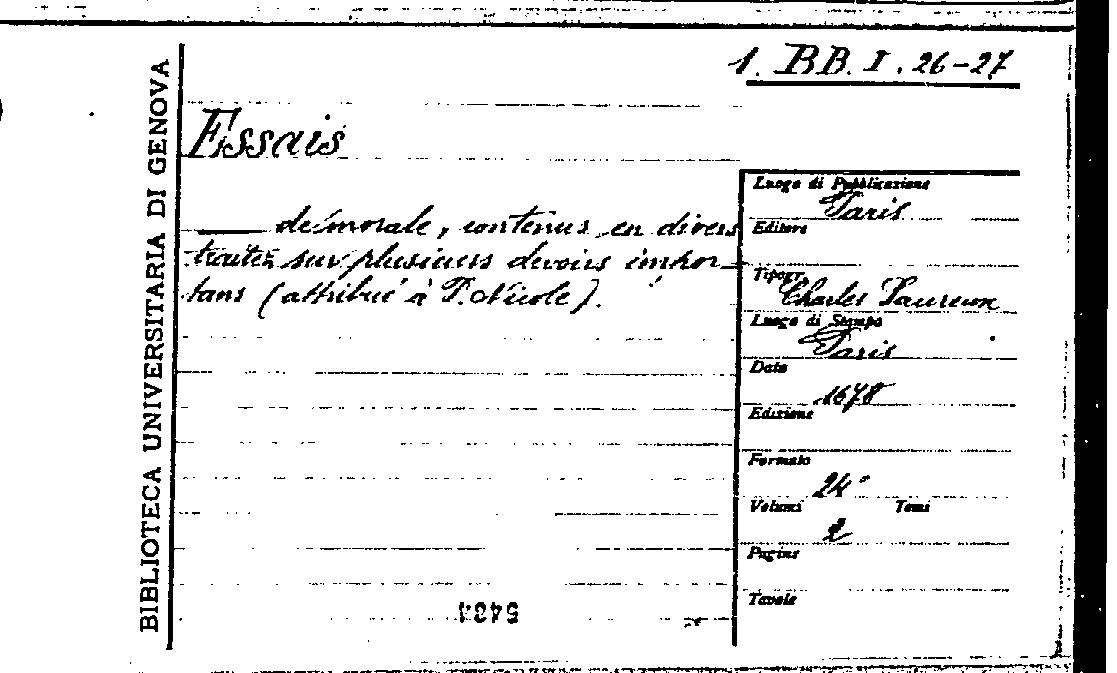 BIBLIOTECA UNIVERSITARIA DI GENOVA
1. BB. I. 26-27
Essais
de morale, contenus en divers
traitez sur plusieurs devoirs impor-
tans (attribué à P. Nicole).
Luogo di Pubblicazione
Paris
Editore
Tipogr.
Charles Saureux
Luogo di Stampa
Paris
Data
1678
Edizione
Formato
24°
Volumi Tomi
2
Pagine
Tavole